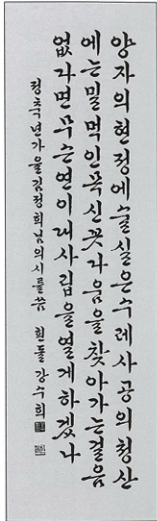 양자의현정에술실은수레사공의청산
에는밀먹인폭신꽃다음을찾아가는걸음
없다면무슨연이래사립을열게하겠나
정축년가을김정희님의시를씀 힌돌 강수희